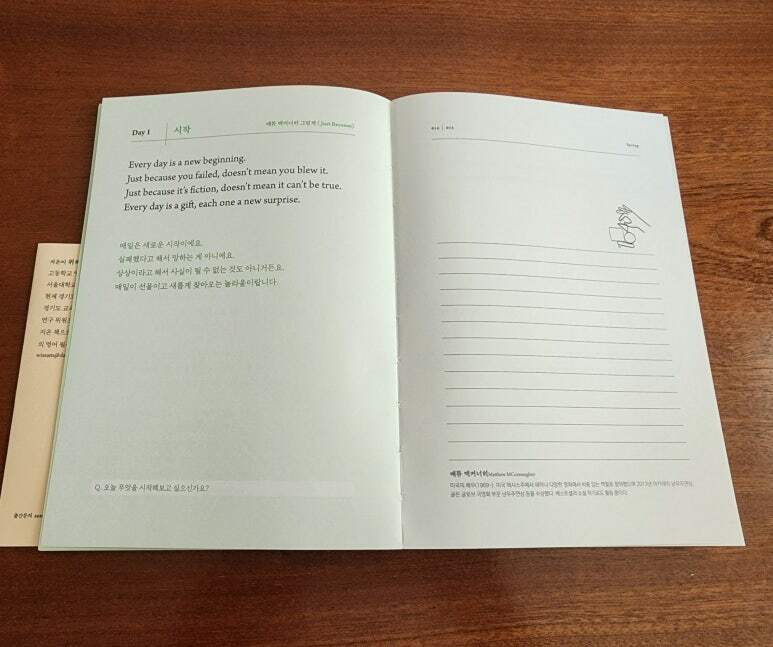 Day 1
시작
매튜 맥커너히 그림책 (Just Because)
Every day is a new beginning.
Just because you failed, doesn't mean you blew it.
Just because it's fiction, doesn't mean it can't be true.
Every day is a gift, each one a new surprise.
매일은 새로운 시작이에요.
실패했다고 해서 망하는 게 아니에요.
상상이라고 해서 사실이 될 수 없는 것도 아니거든요.
매일이 선물이고 새롭게 찾아오는 놀라움이랍니다.
Q. 오늘 무엇을 시작해보고 싶으신가요?
지은이 위
고등학교
서울대학교
현재 경기
경기도 교
연구 위원
지은 책으
의 영어 필
출간문의
매튜 맥커너히 Matthew McConaughey
미국의 배우(1969~).